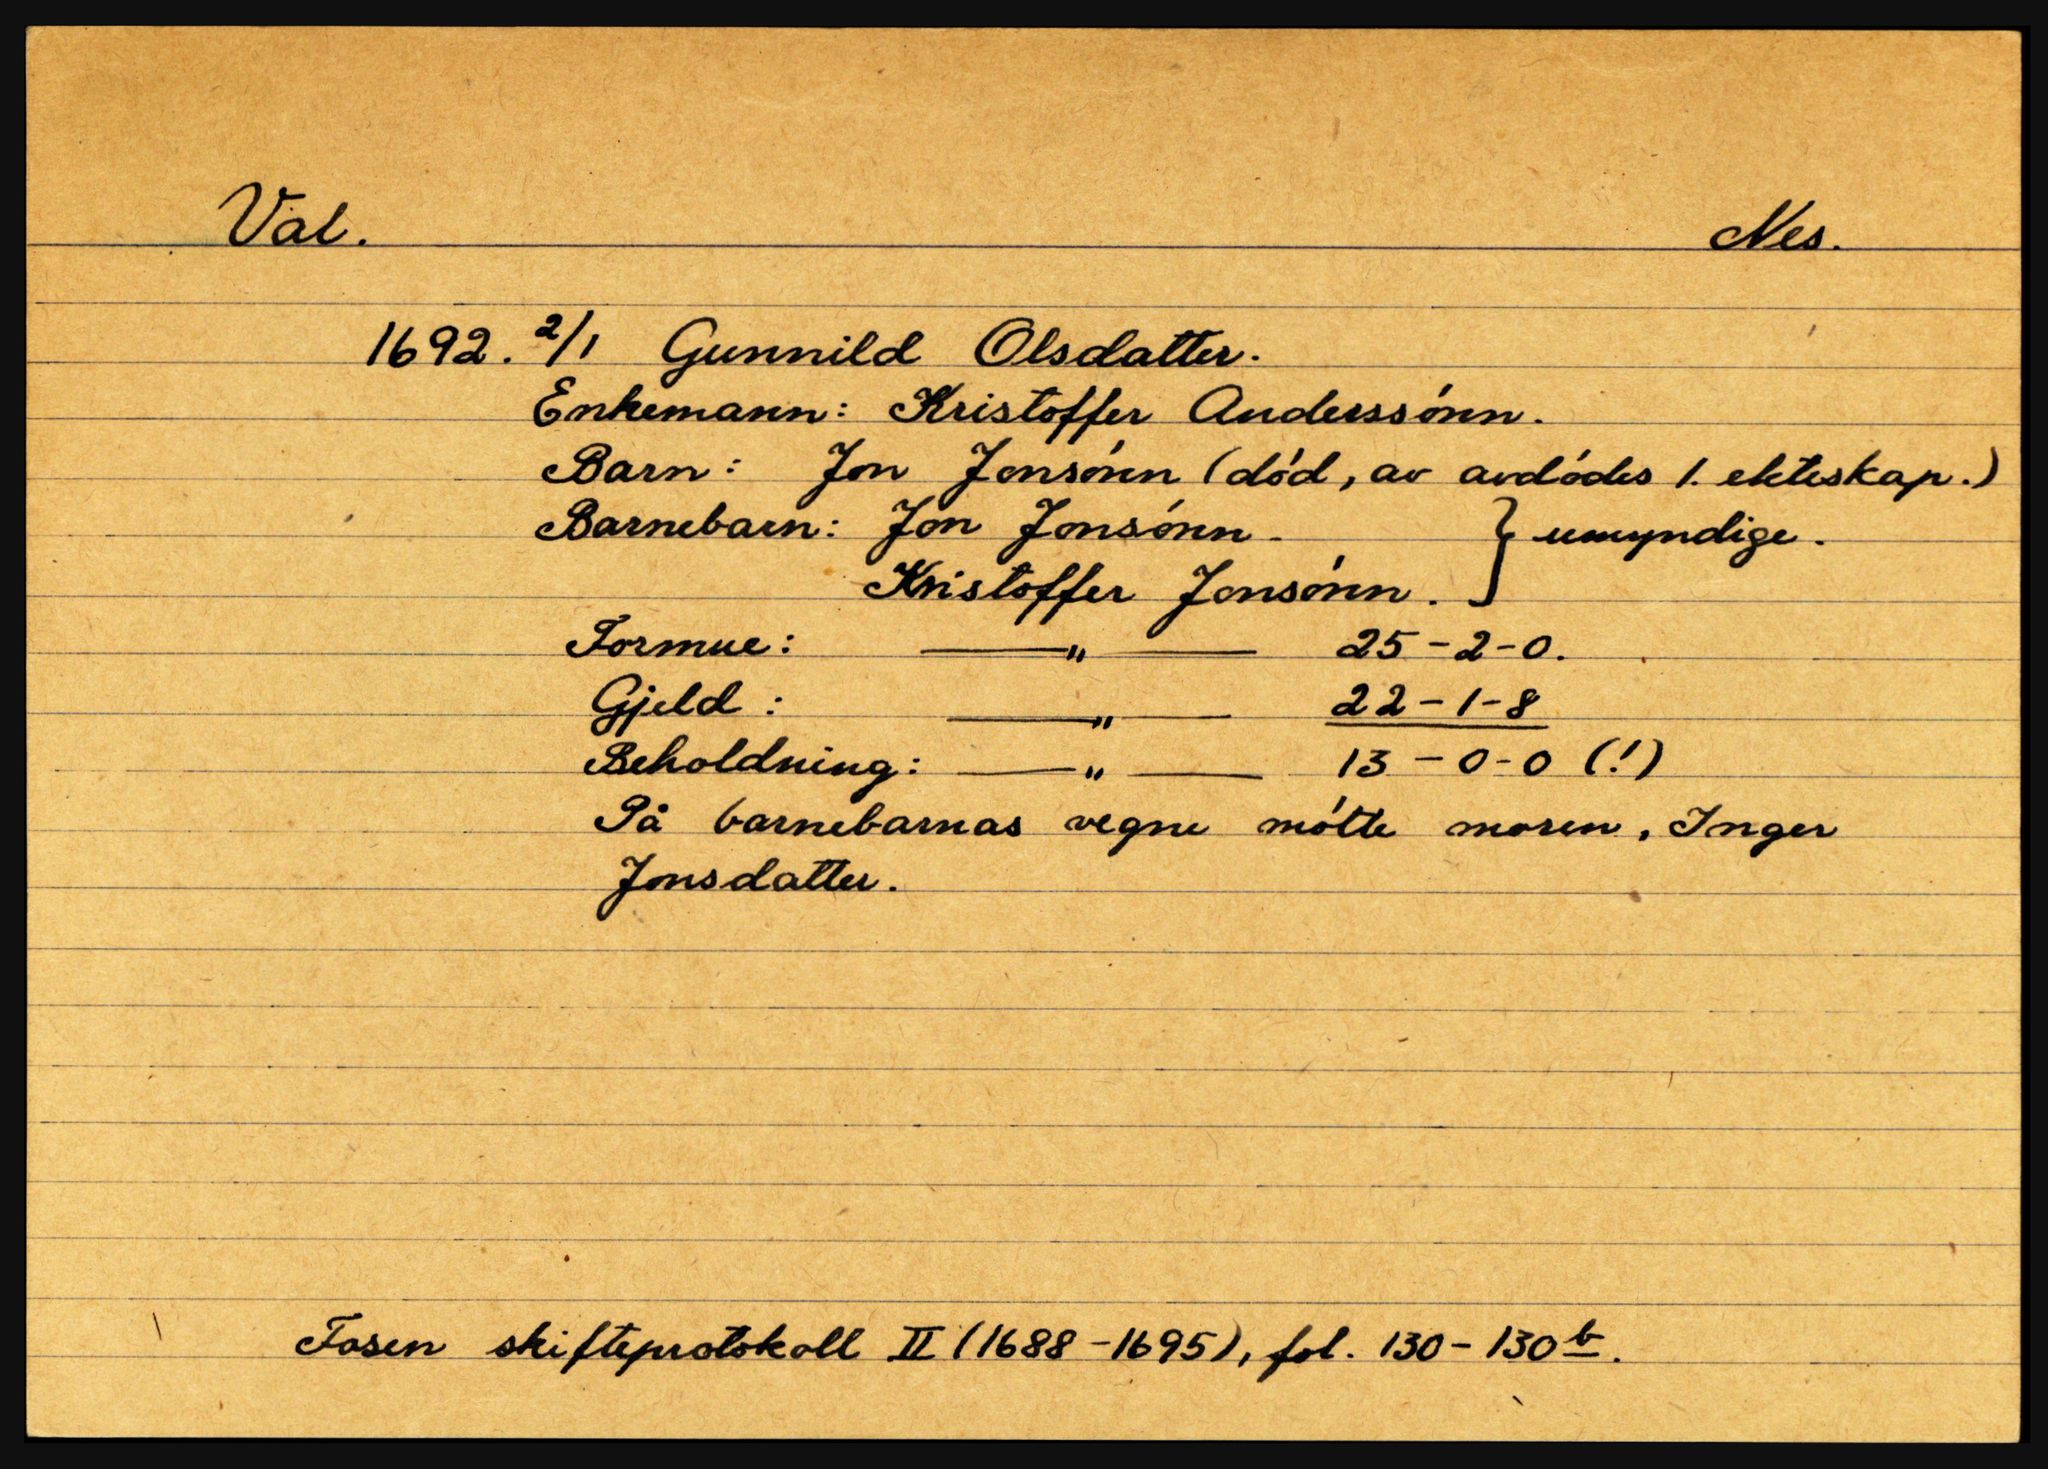 Val. Nes.
1692. 2/1 Gunnild Olsdatter.
Enkemann: Kristoffer Anderssónn.
Barn: Jon Jonsónn (dód, av avdódes 1. ekteskap.)
Barnebarn: Jon Jonsónn - } umyndige.
Kristoffer Jonsónn.
Formue: —— " —— 25-2-0.
Gjeld: —— " —— 22-1-8
Beholdning: —— " —— 13-0-0 (!)
På barnebarnas vegne mótte moren, Inger
Jonsdatter.
Fosen skifteprotokoll II (1688-1695), fol. 130-130b.